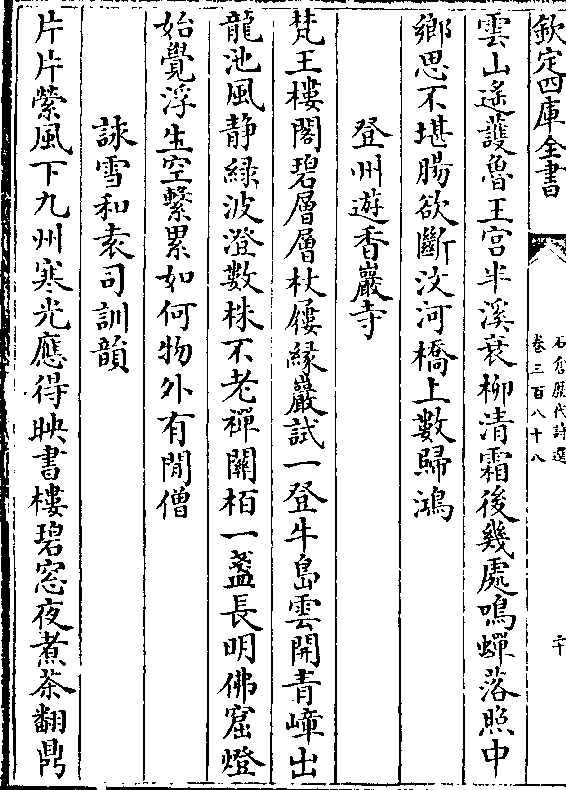 欽定四庫全書
石倉歷代詩選
卷三百八十八
二十
雲山遙護魯王宫半溪衰柳清霜後幾處鳴蟬落照中
鄉思不堪腸欲斷汶河橋上數歸鴻
登州遊香巖寺
梵王樓閣碧層層杖屨緣巖試一登牛島雲開青嶂出
龍池風静綠波澄數株不老禪關栢一盞長明佛窟燈
始覺浮生空繫累如何物外有閒僧
詠雪和袁司訓韻
片片縈風下九州寒光應得映書樓碧窓夜煮茶翻鼎